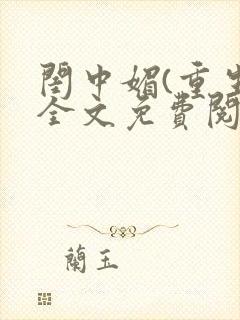 閨中媚(重生
全文免費閱
蘭玉